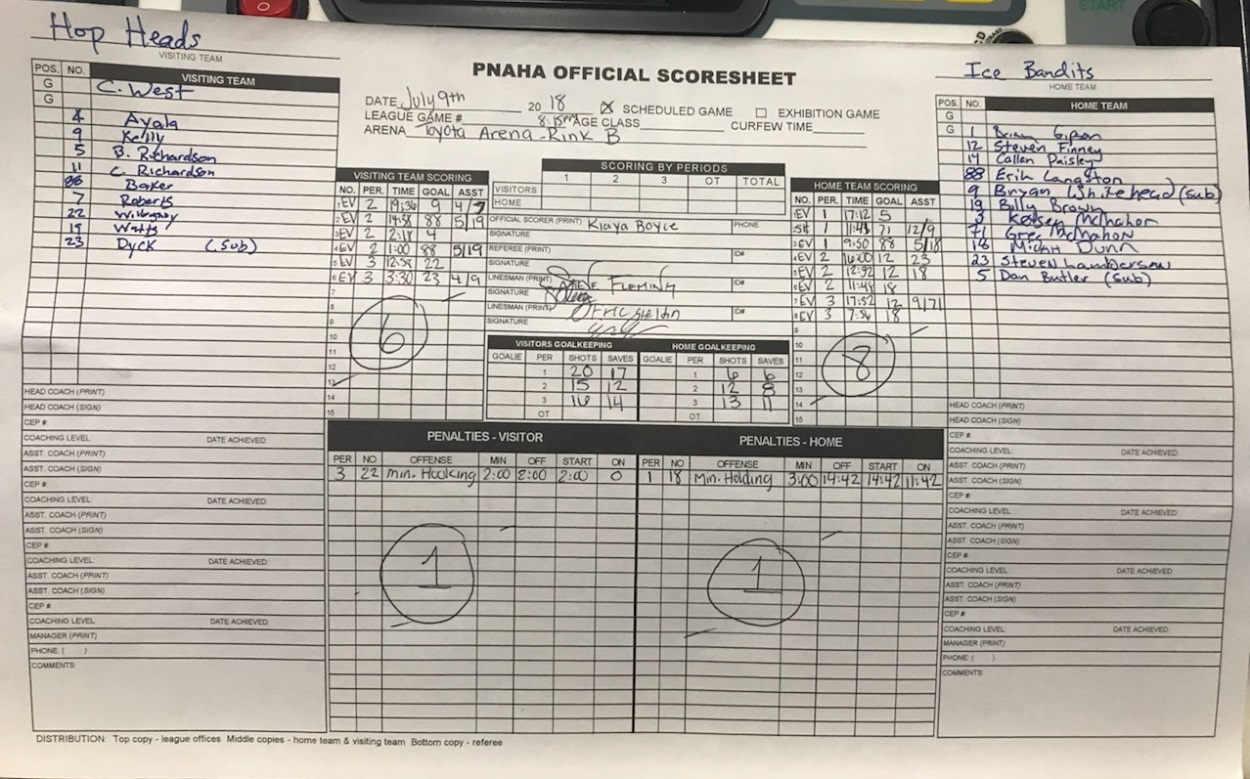 START
Hop Heads
VISITING TEAM
Ice Bandits
HOME TEAM
PNAHA OFFICIAL SCORESHEET
DATE July 9th 20 18 SCHEDULED GAME EXHIBITION GAME
LEAGUE GAME # 8:15pm AGE CLASS CURFEW TIME
ARENA Toyota Arena - Rink B
POS. NO. VISITING TEAM
G C. West
G
4 Ayala
9 Kelly
5 B. Richardson
11 C. Richardson
88 Baker
7 Roberts
22 Willoughby
19 Watts
23 Dyck (Sub)
VISITING TEAM SCORING
NO. PER. TIME GOAL ASST
1 EV 2 19:36 9 4/7
2 EV 2 14:58 88 5/19
3 EV 2 2:18 4
4 EV 2 1:00 88 5/19
5 EV 3 12:59 22
6 EV 3 3:30 23 4/9
7
8
9
10
11
12
13
14
15
6
SCORING BY PERIODS
1 2 3 OT TOTAL
VISITORS
HOME
OFFICIAL SCORER (PRINT) Kiaya Boyce PHONE
SIGNATURE
REFEREE (PRINT) ID#
SIGNATURE
LINESMAN (PRINT) Steve Fleming ID#
SIGNATURE
LINESMAN (PRINT) ID#
SIGNATURE
VISITORS GOALKEEPING HOME GOALKEEPING
GOALIE PER SHOTS SAVES GOALIE PER SHOTS SAVES
1 20 17 1 6 6
2 15 12 2 12 8
3 16 14 3 13 11
OT OT
HOME TEAM SCORING
NO. PER. TIME GOAL ASST
1 EV 1 17:12 5
2 SH 1 11:43 71 12/9
3 EV 1 9:50 88 5/18
4 EV 2 16:00 12 23
5 EV 2 12:52 12 18
6 EV 2 11:48 18
7 EV 3 17:52 12 9/71
8 EV 3 7:56 18
9
10
11
12
13
14
15
8
POS. NO. HOME TEAM
G
G 1 Brian Gipson
12 Steven Finney
14 Callen Paisley
88 Erik Langston
9 Bryan Whitehead (sub)
19 Billy Brown
3 Kelsey McMahon
71 Greg McMahon
18 Micah Dunn
23 Steven Lamberson
5 Dan Butler (sub)
PENALTIES - VISITOR
PER NO OFFENSE MIN OFF START ON
3 22 Min. Hooking 2:00 2:00 2:00 0
1
PENALTIES - HOME
PER NO OFFENSE MIN OFF START ON
1 18 Min. Holding 3:00 14:42 14:42 11:42
1
HEAD COACH (PRINT)
HEAD COACH (SIGN)
CEP #
COACHING LEVEL DATE ACHIEVED
ASST. COACH (PRINT)
ASST. COACH (SIGN)
CEP #
COACHING LEVEL DATE ACHIEVED
ASST. COACH (PRINT)
ASST. COACH (SIGN)
CEP #
COACHING LEVEL DATE ACHIEVED
ASST. COACH (PRINT)
ASST. COACH (SIGN)
CEP #
COACHING LEVEL DATE ACHIEVED
MANAGER (PRINT)
PHONE ( )
COMMENTS:
HEAD COACH (PRINT)
HEAD COACH (SIGN)
CEP #
COACHING LEVEL DATE ACHIEVED
ASST. COACH (PRINT)
ASST. COACH (SIGN)
CEP #
COACHING LEVEL DATE ACHIEVED
ASST. COACH (PRINT)
ASST. COACH (SIGN)
CEP #
COACHING LEVEL DATE ACHIEVED
ASST. COACH (PRINT)
ASST. COACH (SIGN)
CEP #
COACHING LEVEL DATE ACHIEVED
MANAGER (PRINT)
PHONE ( )
COMMENTS:
DISTRIBUTION: Top copy - league offices Middle copies - home team & visiting team Bottom copy - referee